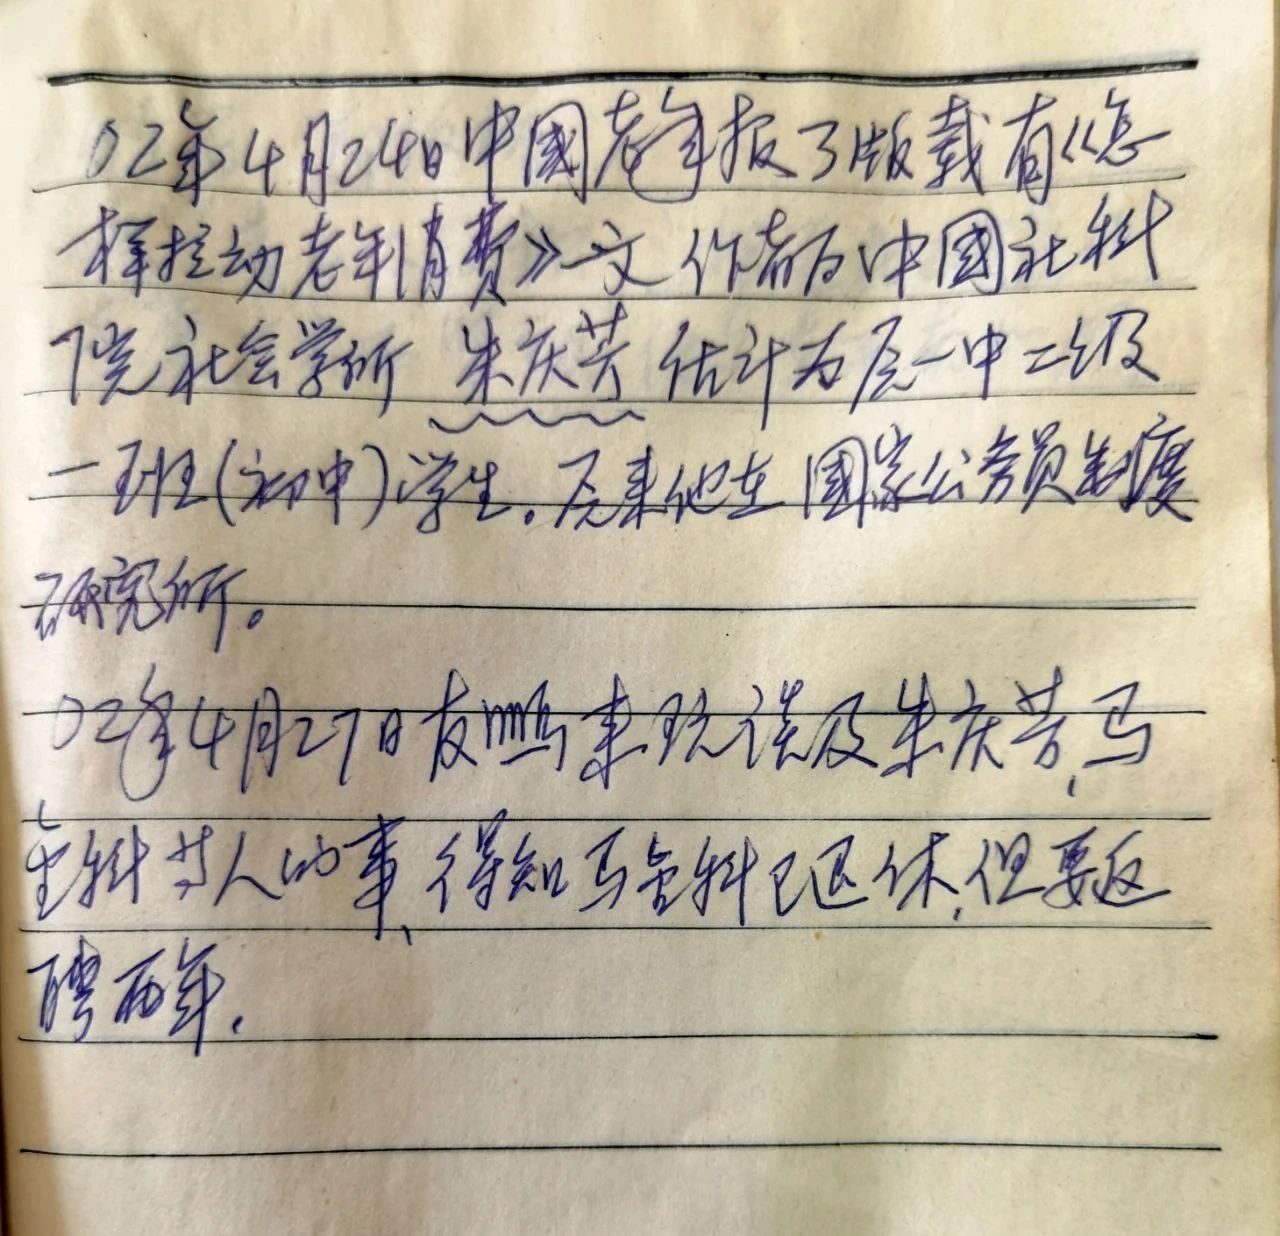 02年4月24日中國老年报3版载有《怎
样拉动老年消费》一文 作者为中國社科
院社会学所 朱庆芳 估计为原一中二级
一班(初中)学生。原来他在國家公务员制度
研究所。
02年4月27日友鹏来玩谈及朱庆芳、马
金科等人的事,得知马金科已退休,但要返
聘两年.